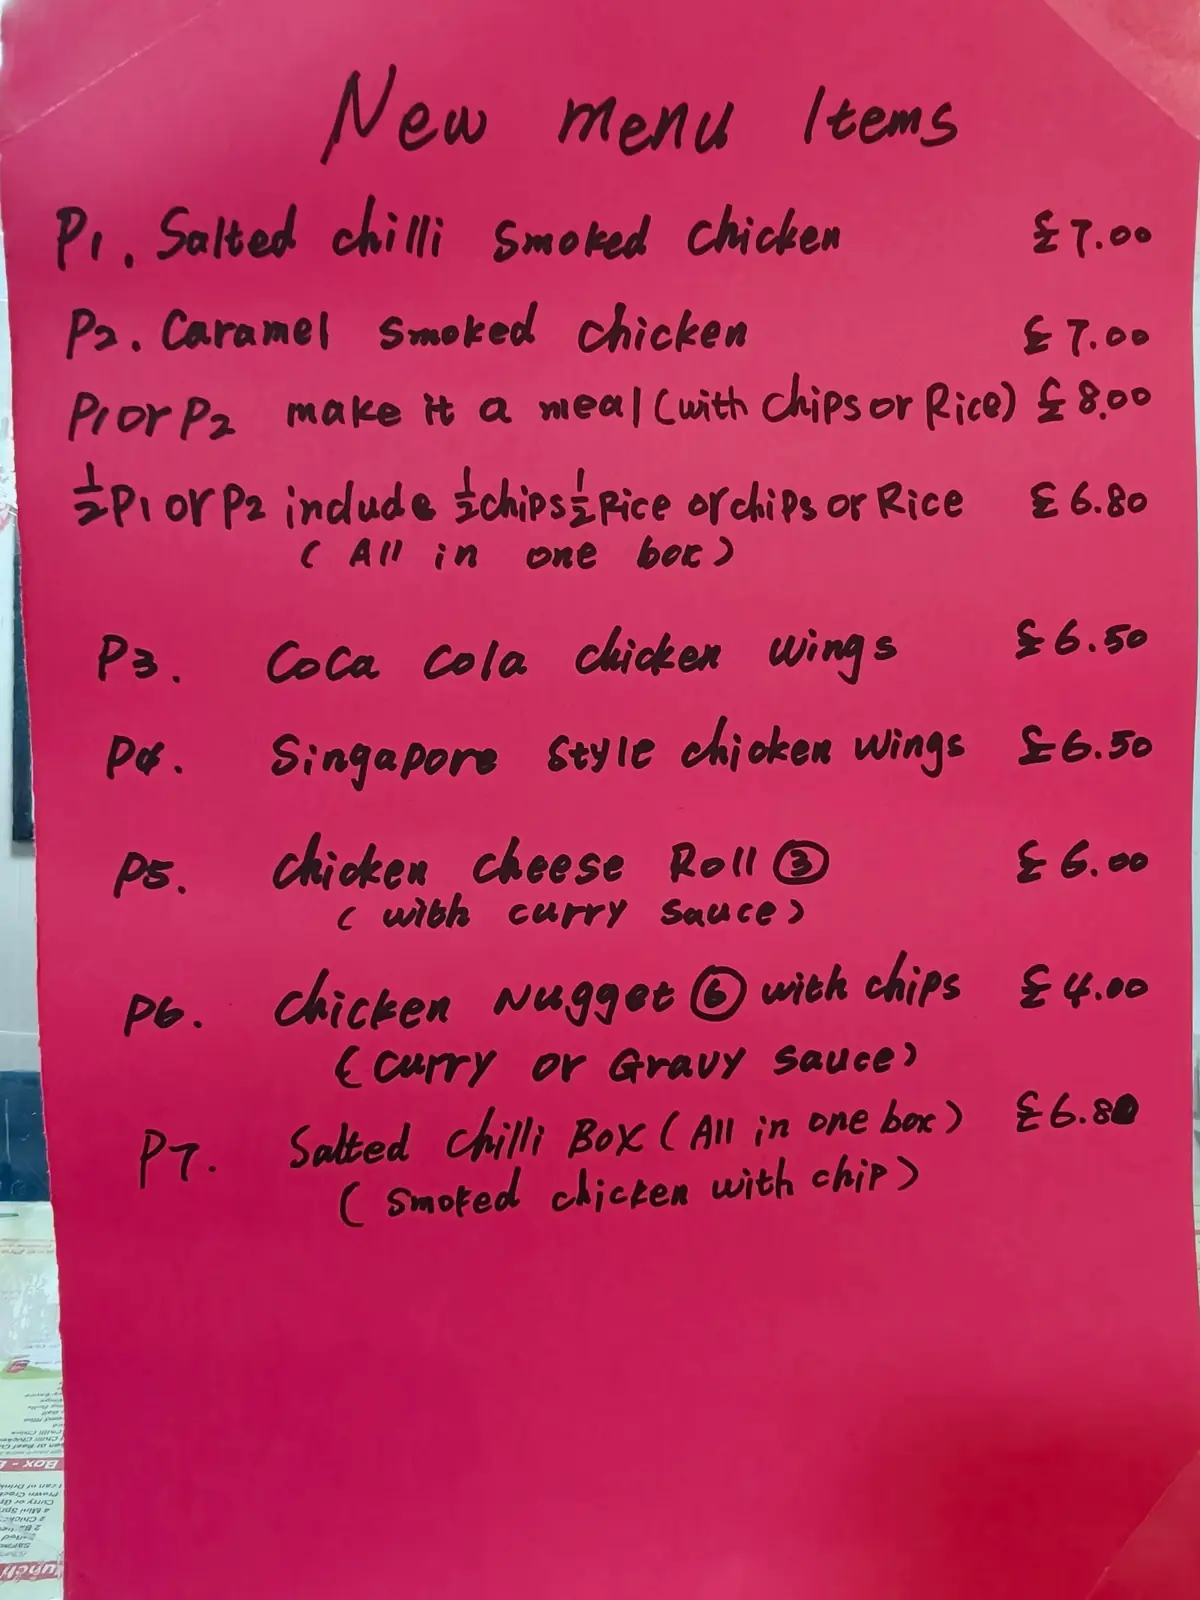 New menu Items
P1. Salted chilli smoked chicken £7.00
P2. Caramel smoked chicken £7.00
P1 or P2 make it a meal (with chips or Rice) £8.00
½ P1 or P2 include ½ chips ½ Rice or chips or Rice £6.80
(All in one box)
P3. Coca Cola chicken wings £6.50
P4. Singapore style chicken wings £6.50
P5. chicken cheese Roll ③ £6.00
(with curry sauce)
P6. chicken Nugget ⑥ with chips £4.00
(curry or Gravy sauce)
P7. Salted chilli Box (All in one box) £6.80
(smoked chicken with chip)